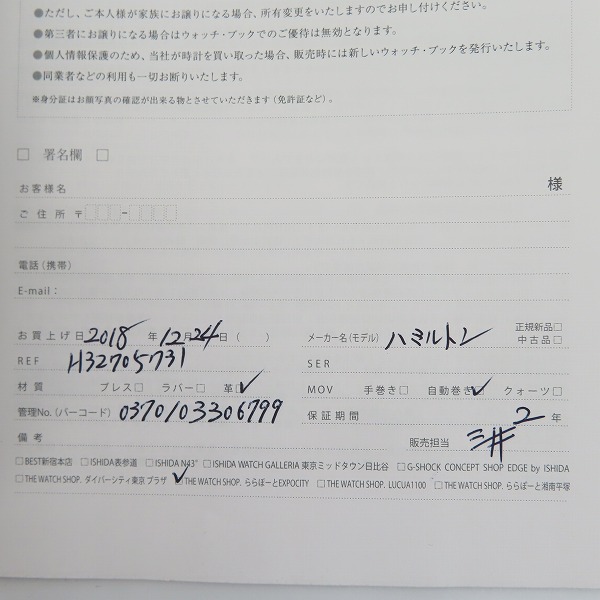 ●ただし、ご本人様が家族にお譲りになる場合、所有変更をいたしますのでお申し付けください。
●第三者にお譲りになる場合はウォッチ・ブックでのご優待は無効となります。
●個人情報保護のため、当社が時計を買い取った場合、販売時には新しいウォッチ・ブックを発行いたします。
●同業者などの利用も一切お断りいたします。
※身分証はお顔写真の確認が出来る物とさせていただきます(免許証など)。
□ 署名欄 □
お客様名 様
ご住所 〒□□□-□□□□
電話(携帯)
E-mail:
お買上げ日 2018 年 12 月 24 日 ( ) メーカー名(モデル) ハミルトン 正規新品□ 中古品□
REF H32705731 SER
材質 ブレス□ ラバー□ 革☑ MOV 手巻き□ 自動巻き☑ クォーツ□
管理No.(バーコード) 0370103306799 保証期間 2 年
備考 販売担当 三井
□BEST新宿本店 □ISHIDA表参道 □ISHIDA N43° □ISHIDA WATCH GALLERIA 東京ミッドタウン日比谷 □G-SHOCK CONCEPT SHOP EDGE by ISHIDA
□THE WATCH SHOP. ダイバーシティ東京 プラザ ☑THE WATCH SHOP. ららぽーとEXPOCITY □THE WATCH SHOP. LUCUA1100 □THE WATCH SHOP. ららぽーと湘南平塚